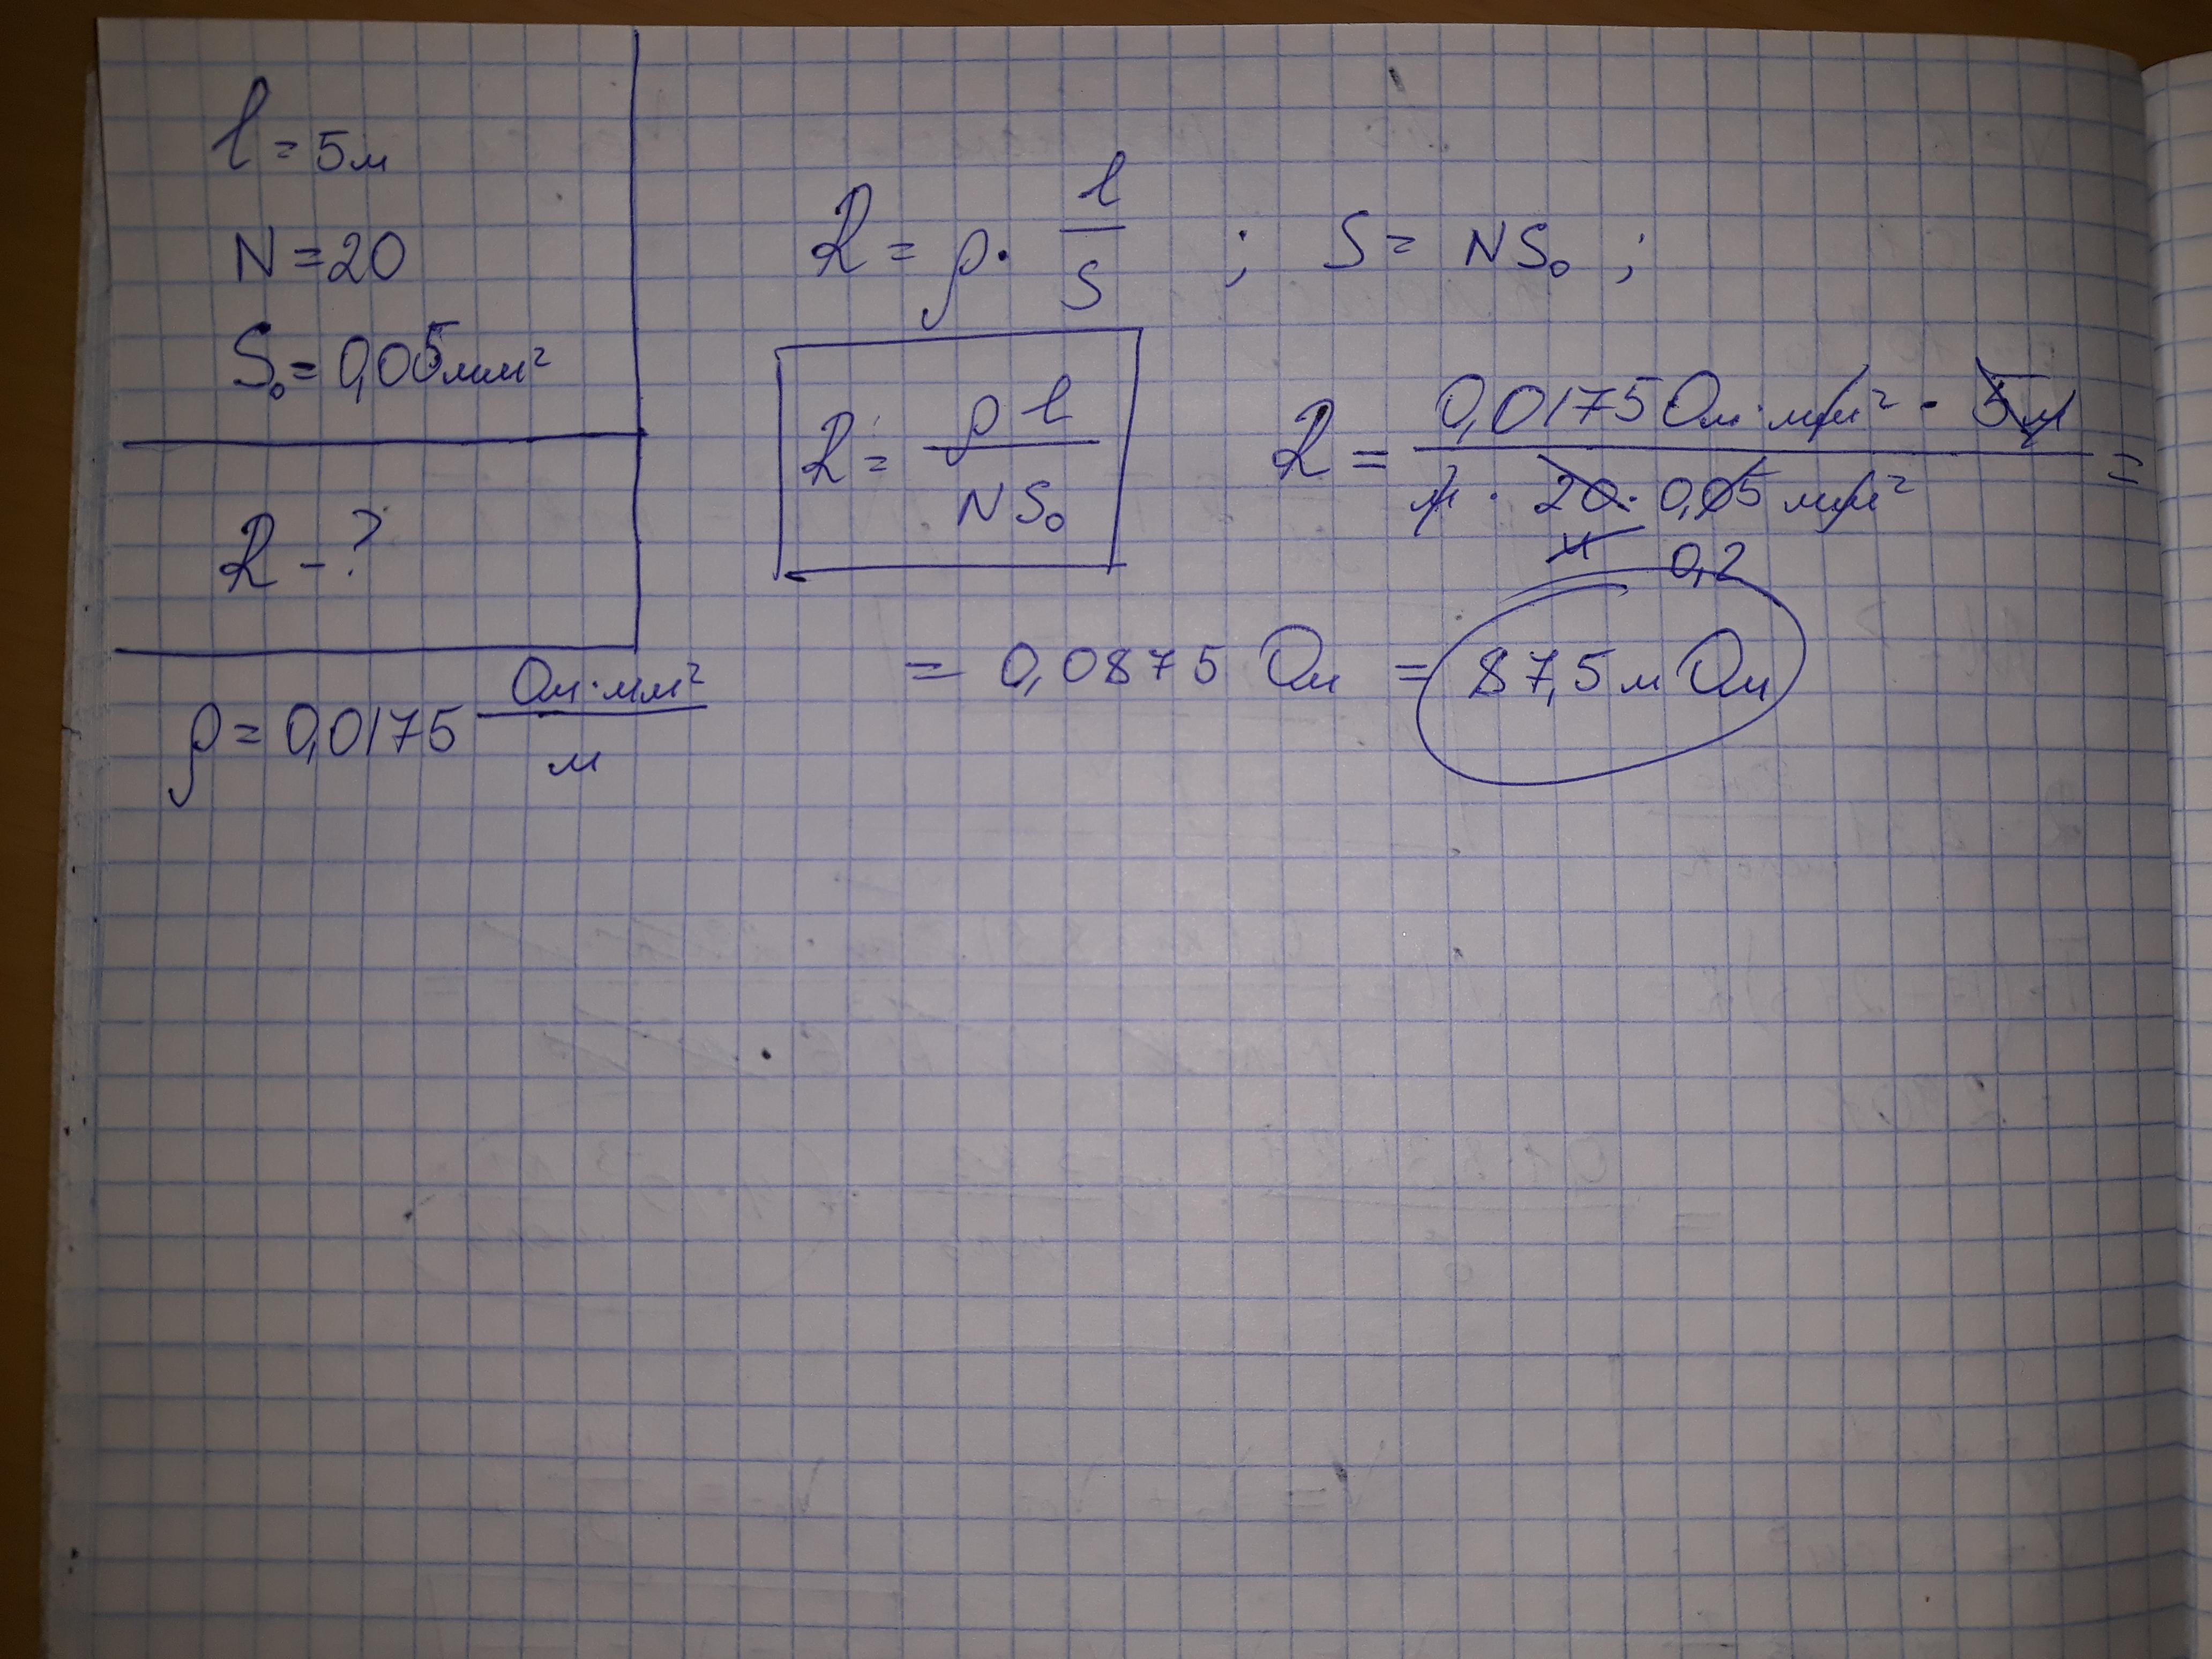 l = 5м
N = 20
S₀ = 0,05мм²
R - ?
ρ = 0,0175 Ом·мм² / м
R = ρ · l / S ; S = NS₀ ;
R = ρ l / NS₀
R = 0,0175 Ом·мм² · 5м / м · 20 · 0,05 мм² =
4 0,2
= 0,0875 Ом = 87,5 мОм